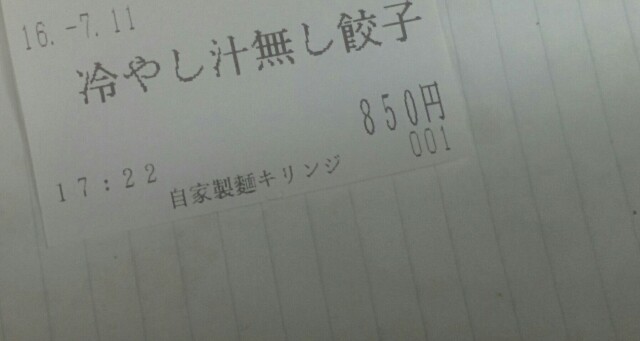 16.-7.11
冷やし汁無し餃子
850円
17:22
自家製麺キリンジ
001